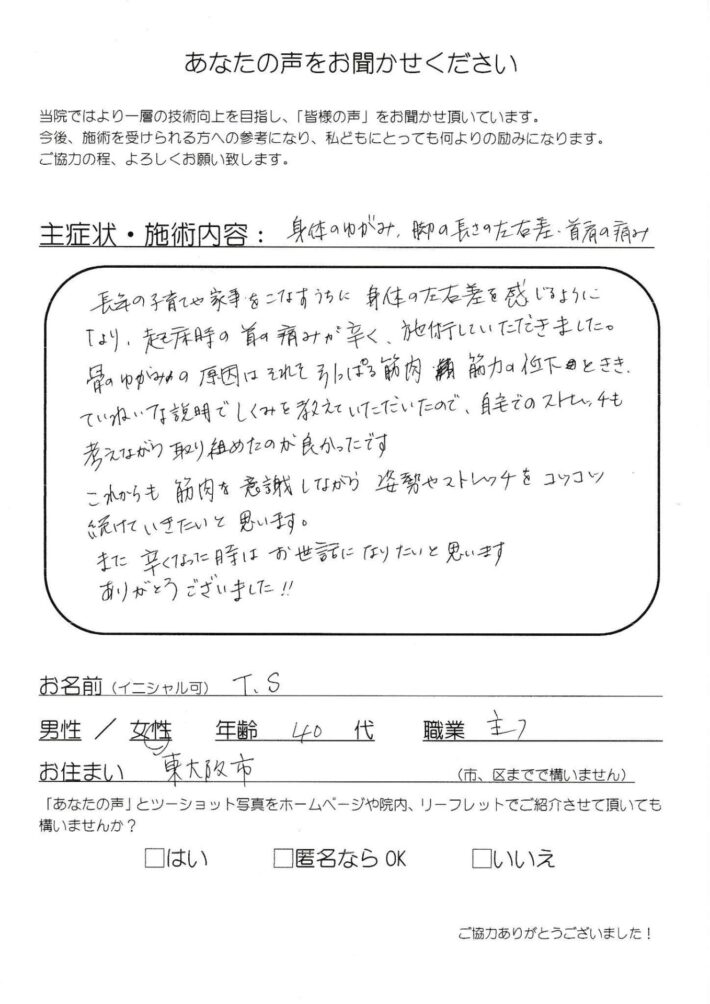 あなたの声をお聞かせください
当院ではより一層の技術向上を目指し、「皆様の声」をお聞かせ頂いています。
今後、施術を受けられる方への参考になり、私どもにとっても何よりの励みになります。
ご協力の程、よろしくお願い致します。
主症状・施術内容： 身体のゆがみ、脚の長さの左右差・首肩の痛み
長年の子育てや家事をこなすうちに 身体の左右差を感じるように
なり、起床時の首の痛みが辛く、施術していただきました。
骨のゆがみの原因はそれを引っぱる筋肉 筋力の低下ときき、
ていねいな説明でしくみを教えていただいたので、自宅でのストレッチも
考えながら取り組めたのが良かったです
これからも筋肉を意識しながら 姿勢やストレッチをコツコツ
続けていきたいと思います。
また 辛くなった時は お世話になりたいと思います
ありがとうございました!!
お名前（イニシャル可） T.S
男性 ／ 女性 年齢 40 代 職業 主フ
お住まい 東大阪市 （市、区までで構いません）
「あなたの声」とツーショット写真をホームページや院内、リーフレットでご紹介させて頂いても
構いませんか？
□はい □匿名なら OK □いいえ
ご協力ありがとうございました！